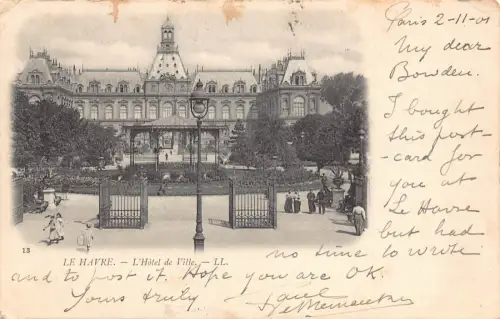 Paris 2-11-01
My dear
Bowden.
I bought
this post-
card for
you at
Le Havre
but had
no time to wrote
and to post it. Hope you are OK.
Yours truly,
Paul
13
LE HAVRE. — L'Hôtel de Ville. — LL.